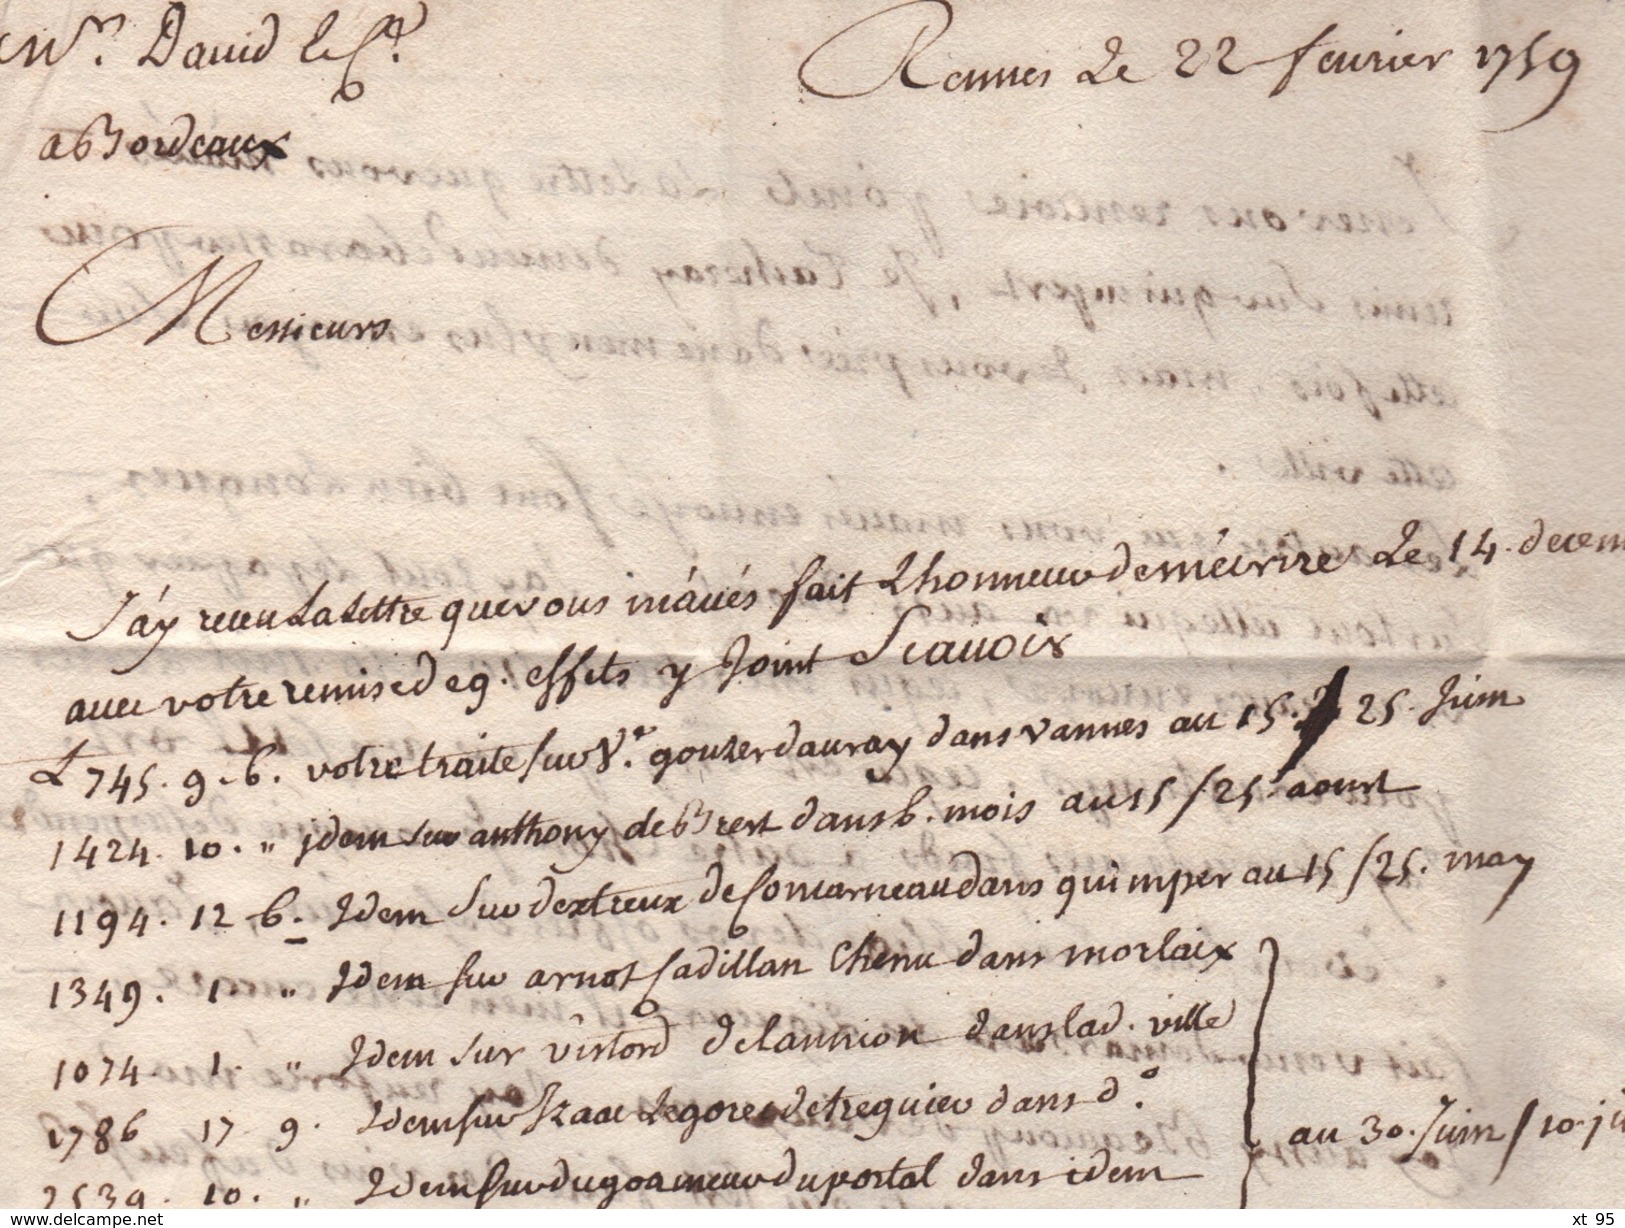 Mrs. David
Rennes Le 22 fevrier 1759
a Bordeaux
Messieurs
J'ay receu La Lettre que vous m'avés fait L'honneur de m'ecrire Le 14. decem
avec votre remise de 9. effets y Joint Scavoir
L 745. 9. 6. votre traite sur Ve. gouzer d'auray dans vannes au 15./25. Juin
1424. 10. " jdem sur anthony de Brest dans 6. mois au 15/25 aoust
1194. 12 6. Idem Sur dextreux de Concarneau dans quimper au 15/25. may
1349. 1 " Idem sur arnot Cadillan Chenu dans morlaix
1074. 1. " Idem sur vistord de Lannion dans lad. ville
1786 17 9. Idem sur Izaac Legorec de treguier dans do.
au 30. Juin / 10. ju
2539. 10. " Idem sur dugoameur du portal dans idem
www.delcampe.net
xt 95